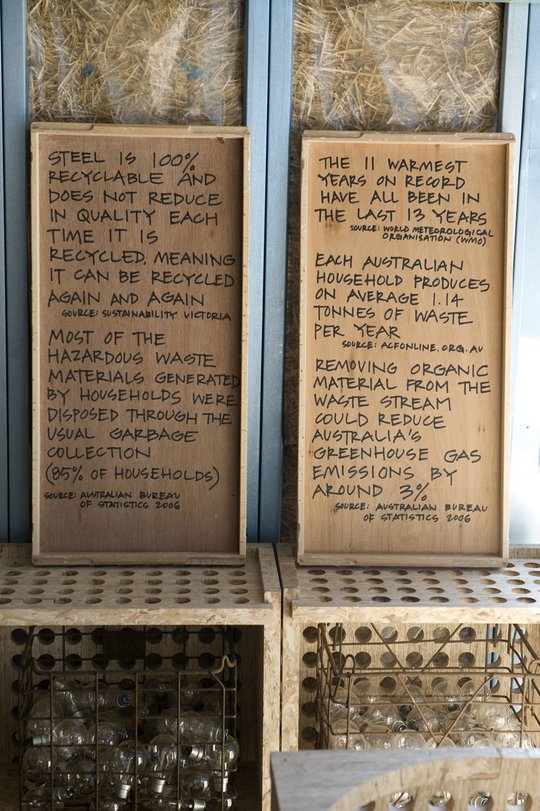 STEEL IS 100%
RECYCLABLE AND
DOES NOT REDUCE
IN QUALITY EACH
TIME IT IS
RECYCLED, MEANING
IT CAN BE RECYCLED
AGAIN AND AGAIN
SOURCE: SUSTAINABILITY VICTORIA
MOST OF THE
HAZARDOUS WASTE
MATERIALS GENERATED
BY HOUSEHOLDS WERE
DISPOSED THROUGH THE
USUAL GARBAGE
COLLECTION
(85% OF HOUSEHOLDS)
SOURCE: AUSTRALIAN BUREAU
OF STATISTICS 2006
THE 11 WARMEST
YEARS ON RECORD
HAVE ALL BEEN IN
THE LAST 13 YEARS
SOURCE: WORLD METEOROLOGICAL
ORGANISATION (WMO)
EACH AUSTRALIAN
HOUSEHOLD PRODUCES
ON AVERAGE 1.14
TONNES OF WASTE
PER YEAR
SOURCE: ACFONLINE.ORG.AU
REMOVING ORGANIC
MATERIAL FROM THE
WASTE STREAM
COULD REDUCE
AUSTRALIA'S
GREENHOUSE GAS
EMISSIONS BY
AROUND 3%
SOURCE: AUSTRALIAN BUREAU
OF STATISTICS 2006